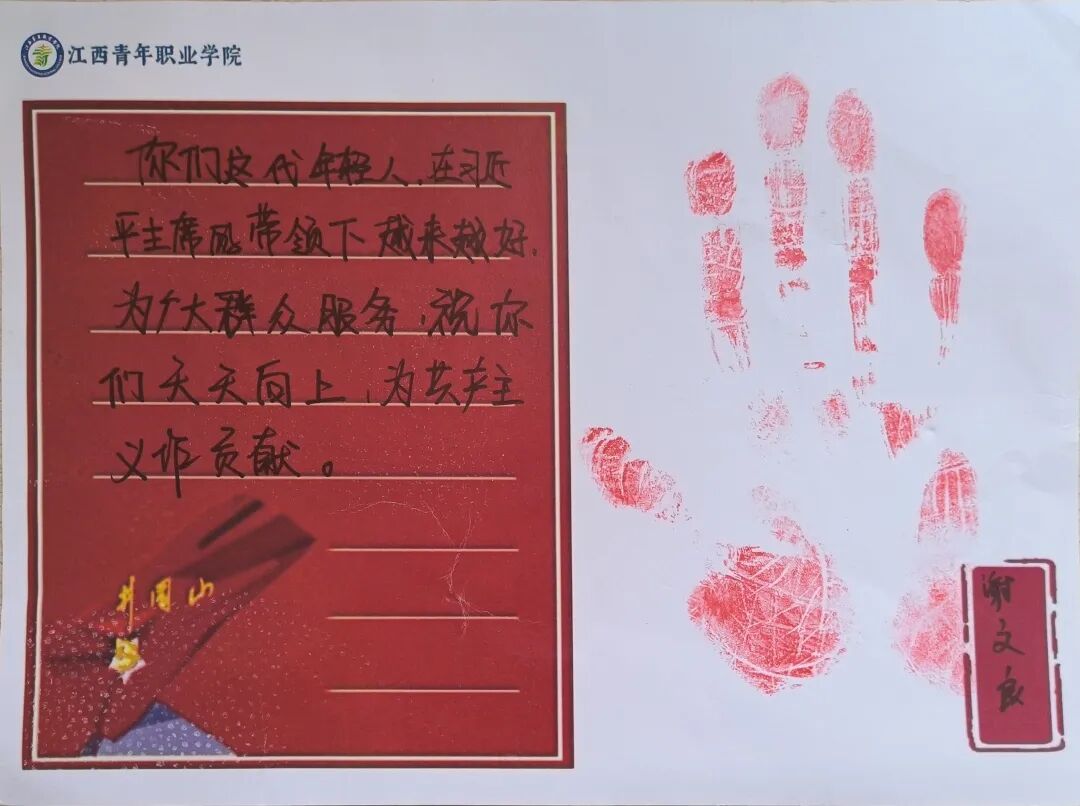 江西青年职业学院
你们这代年轻人,在习近
平主席的带领下越来越好,
为广大群众服务,祝你
们天天向上,为共产主
义作贡献。
井冈山
谢文良